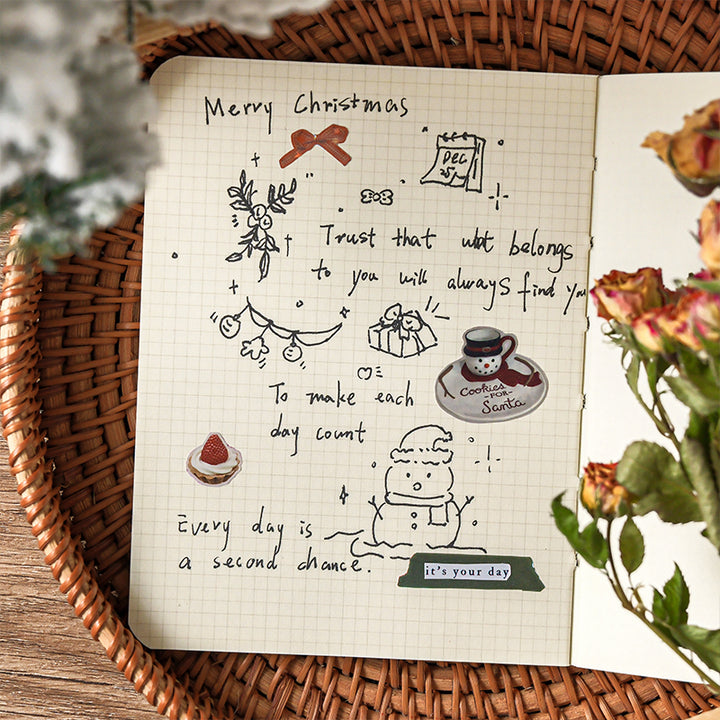 Merry Christmas
Dec
25
Trust that what belongs
to you will always find you
Cookies
-FOR-
Santa
To make each
day count
Every day is
a second chance.
it's your day